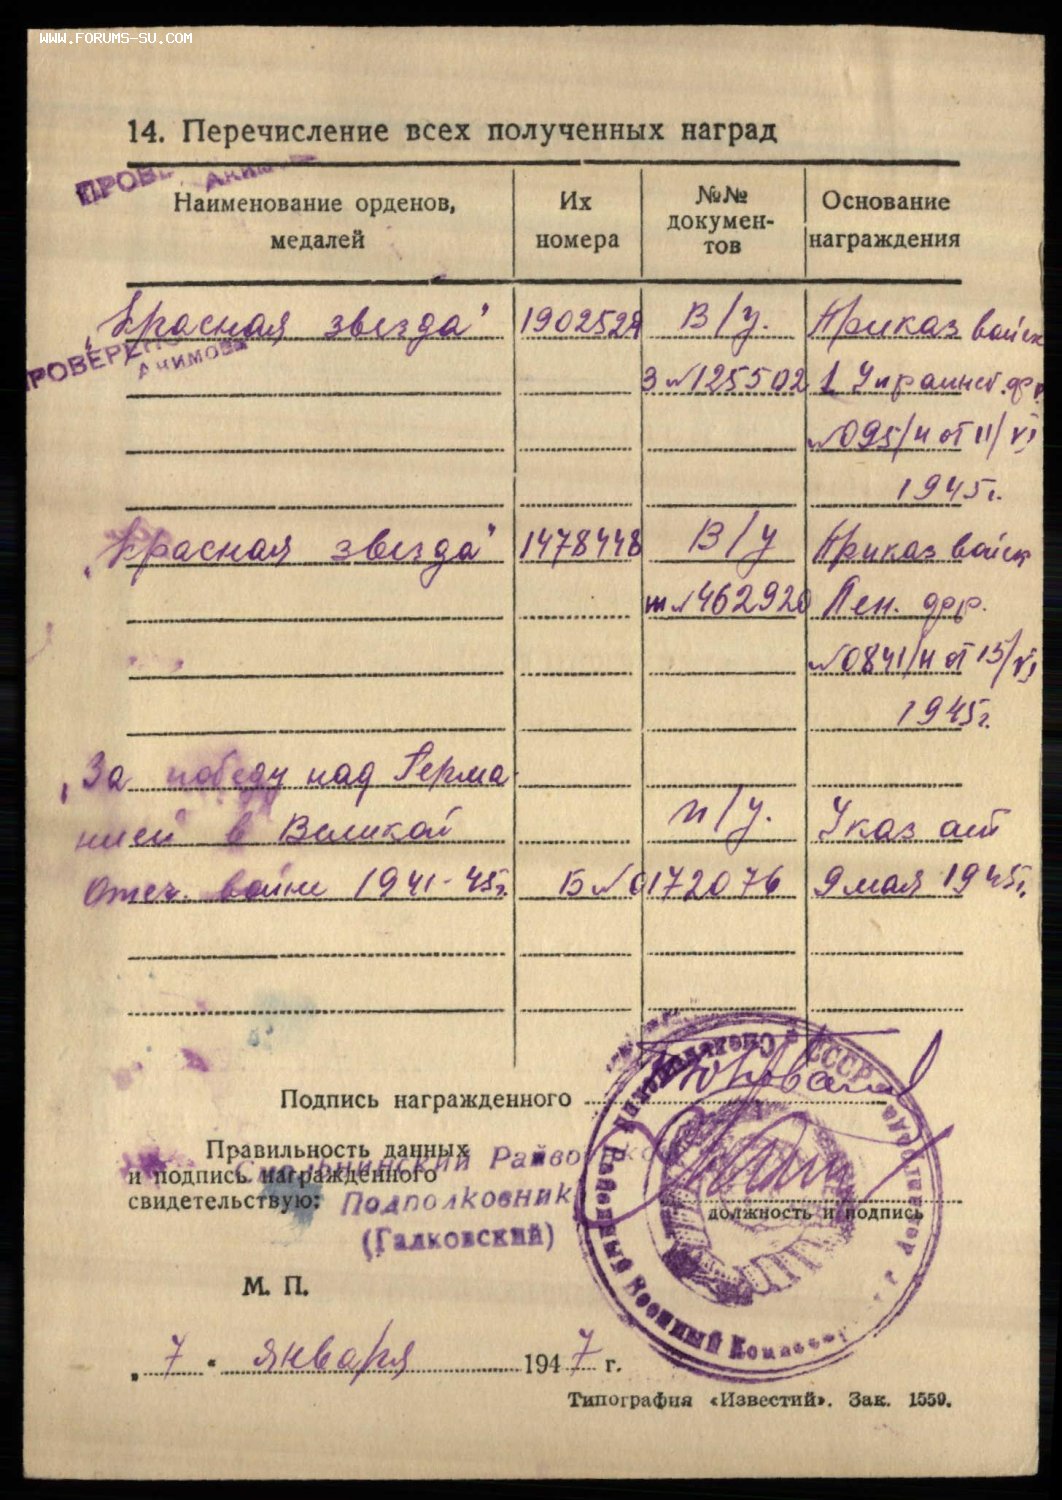 WWW.FORUMS-SU.COM
14. Перечисление всех полученных наград
ПРОВЕ
Наименование орденов, медалей
Их номера
№№ докумен-тов
Основание награждения
„Красная звезда" 1902529 В/у. Приказ войск
ПРОВЕРЕНО
Ачимова
З №125502 1 Украинск. фр.
№095/н от 11/VI
1945г.
„Красная звезда" 1478448 В/у Приказ войск
т №462920 Лен. фр.
№0841/н от 15/VI
1945г.
„За победу над Герма-
нией в Великой п/у. Указ от
Отеч. войне 1941-45г. Б №0172076 9 мая 1945г.
Подпись награжденного
Правильность данных
и подпись награжденного
свидетельствую:
Смольнинский Райвоенком
Подполковник
(Галковский)
должность и подпись
СССР
Районный Военный Комиссар
М. П.
„ 7 " января 1947 г.
Типография «Известий». Зак. 1559.